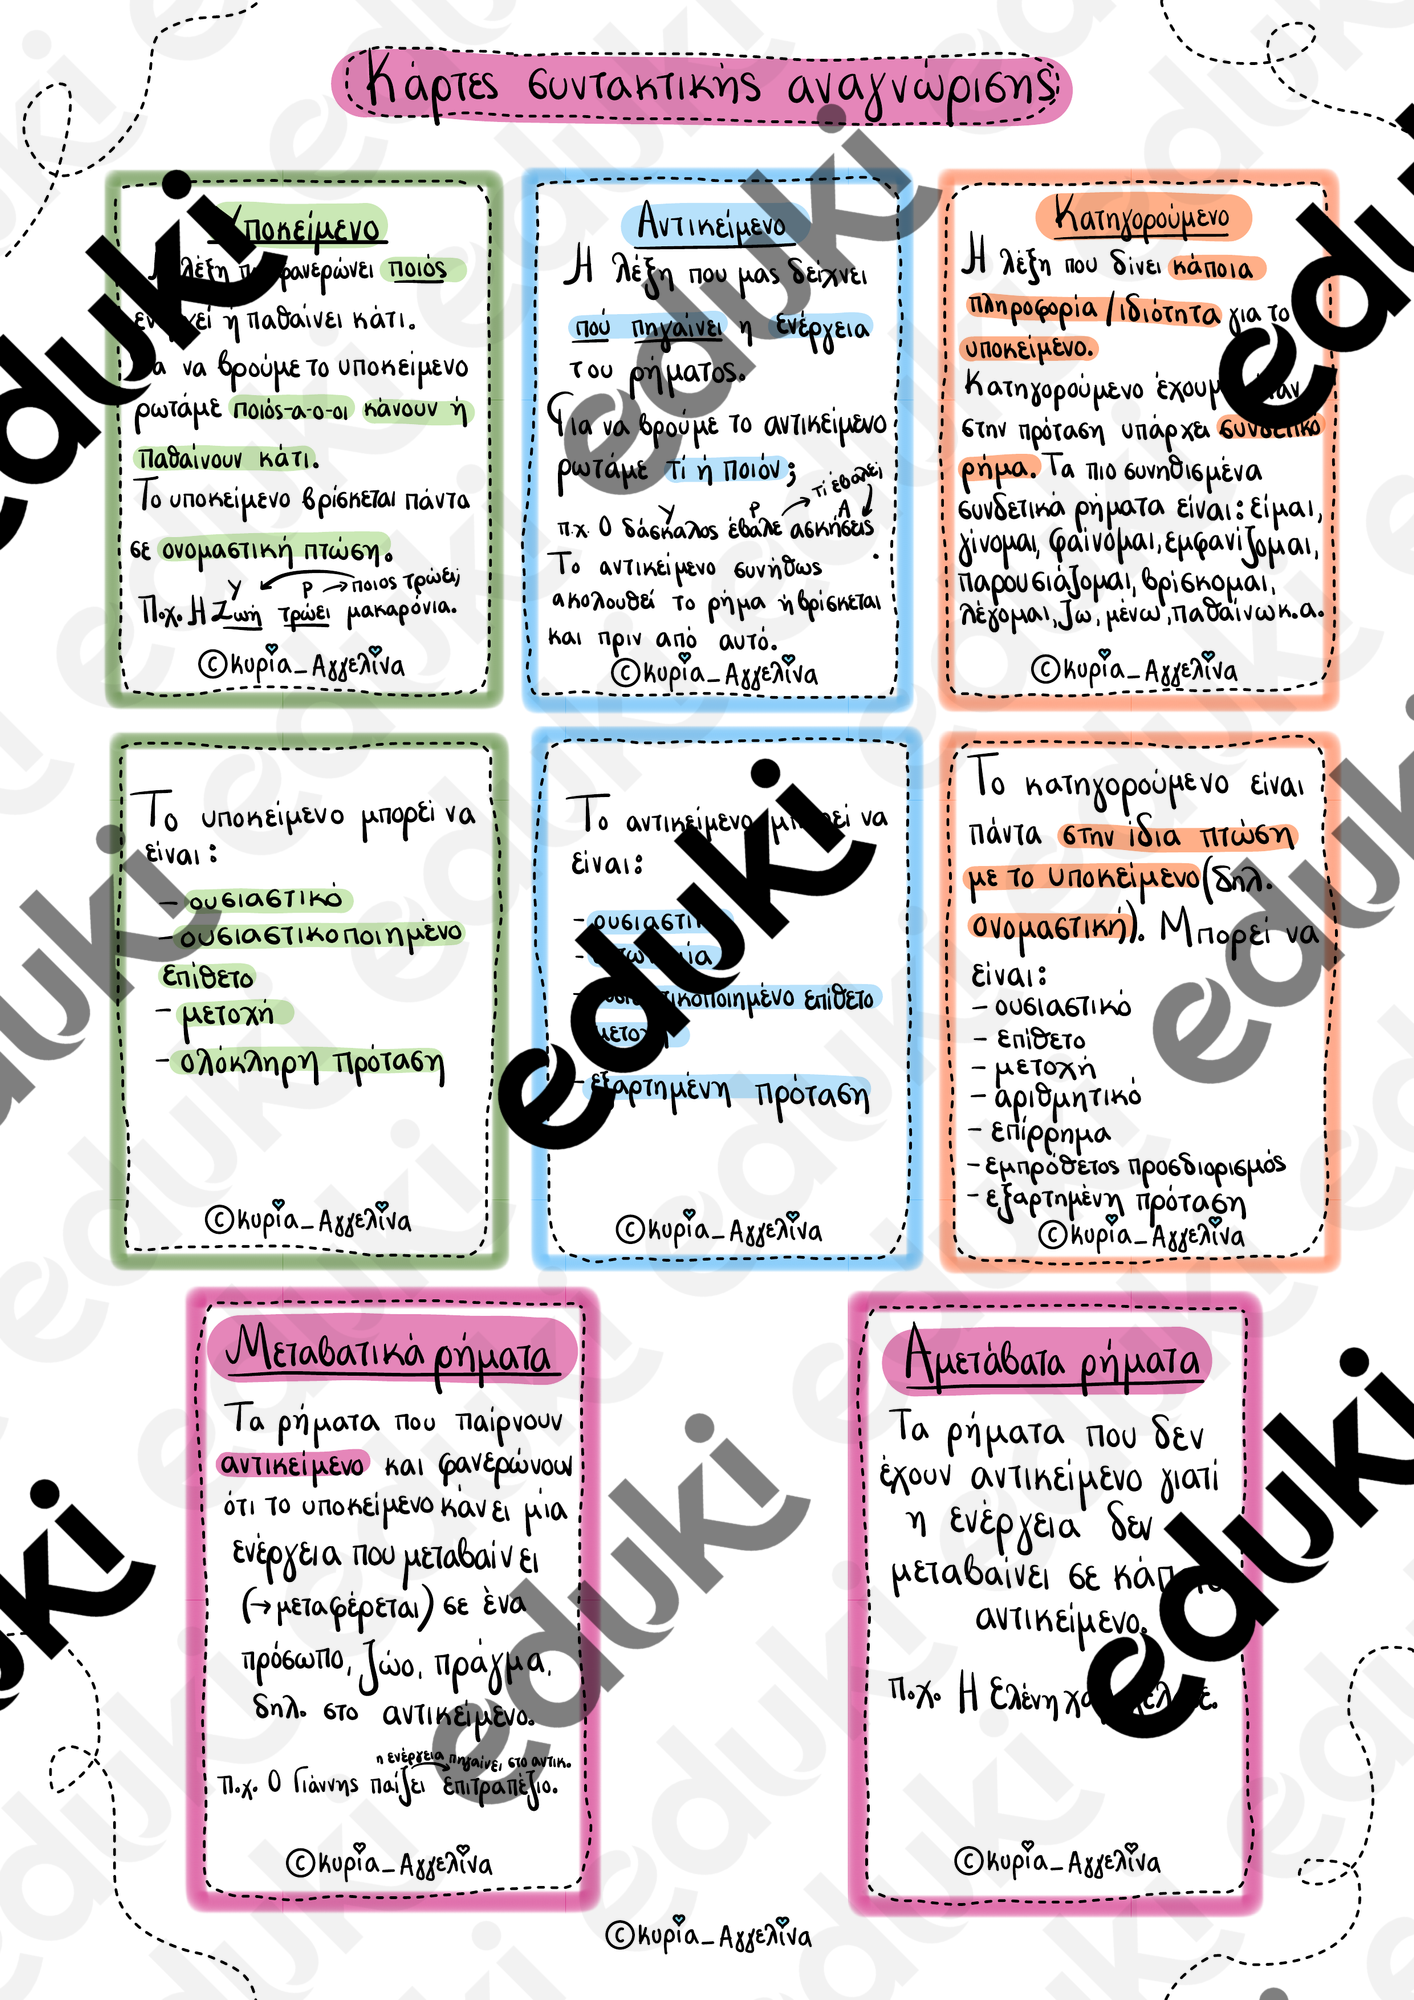 Κάρτες συντακτικής αναγνώρισης
Υποκείμενο
λέξη που φανερώνει ποιός
ενεργεί ή παθαίνει κάτι.
Για να βρούμε το υποκείμενο
ρωτάμε ποιός-α-ο-οι κάνουν ή
παθαίνουν κάτι.
Το υποκείμενο βρίσκεται πάντα
σε ονομαστική πτώση.
Υ Ρ → ποιος τρώει;
Π.χ. Η Ζωή τρώει μακαρόνια.
© κυρία_Αγγελίνα
Αντικείμενο
Η λέξη που μας δείχνει
πού πηγαίνει η ενέργεια
του ρήματος.
Για να βρούμε το αντικείμενο
ρωτάμε τί ή ποιόν;
Υ Ρ → τί έβαλε; Α
π.χ. Ο δάσκαλος έβαλε ασκήσεις
Το αντικείμενο συνήθως
ακολουθεί το ρήμα ή βρίσκεται
και πριν από αυτό.
© κυρία_Αγγελίνα
Κατηγορούμενο
Η λέξη που δίνει κάποια
πληροφορία / ιδιότητα για το
υποκείμενο.
Κατηγορούμενο έχουμε όταν
στην πρόταση υπάρχει συνδετικό
ρήμα. Τα πιο συνηθισμένα
συνδετικά ρήματα είναι: είμαι,
γίνομαι, φαίνομαι, εμφανίζομαι,
παρουσιάζομαι, βρίσκομαι,
λέγομαι, ζω, μένω, παθαίνω κ.α.
© κυρία_Αγγελίνα
Το υποκείμενο μπορεί να
είναι:
- ουσιαστικό
- ουσιαστικοποιημένο
επίθετο
- μετοχή
- ολόκληρη πρόταση
© κυρία_Αγγελίνα
Το αντικείμενο μπορεί να
είναι:
- ουσιαστικό
- αντωνυμία
- ουσιαστικοποιημένο επίθετο
- μετοχή
- εξαρτημένη πρόταση
© κυρία_Αγγελίνα
Το κατηγορούμενο είναι
πάντα στην ίδια πτώση
με το υποκείμενο (δηλ.
ονομαστική). Μπορεί να
είναι:
- ουσιαστικό
- επίθετο
- μετοχή
- αριθμητικό
- επίρρημα
- εμπρόθετος προσδιορισμός
- εξαρτημένη πρόταση
© κυρία_Αγγελίνα
Μεταβατικά ρήματα
Τα ρήματα που παίρνουν
αντικείμενο και φανερώνουν
ότι το υποκείμενο κάνει μία
ενέργεια που μεταβαίνει
(→ μεταφέρεται) σε ένα
πρόσωπο, ζώο, πράγμα,
δηλ. στο αντικείμενο.
η ενέργεια πηγαίνει στο αντικ.
Π.χ. Ο Γιάννης παίζει επιτραπέζιο.
© κυρία_Αγγελίνα
Αμετάβατα ρήματα
Τα ρήματα που δεν
έχουν αντικείμενο γιατί
η ενέργεια δεν
μεταβαίνει σε κάποιο
αντικείμενο.
π.χ. Η Ελένη
© κυρία_Αγγελίνα
© κυρία_Αγγελίνα
eduki
eduki
eduki
eduki
eduki
eduki
eduki
eduki